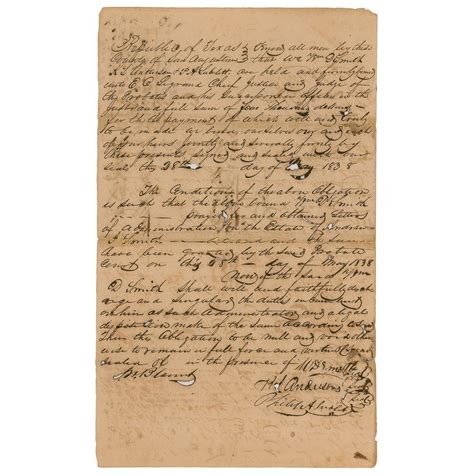 Republic of Texas } Know all men by these
County of San Augustine } that we Wm D Smith
K L Anderson & P A Sublett are held and firmly bound
unto E E Legrand Chief Justice and judge of
the Probates and his successors in office in the
just and full sum of Ten Thousand dollars
for the payment of which well and truly
to be made we bind ourselves our and each
of our heirs jointly and severally firmly by
these presents signed and sealed with our
seals this 28th day of May 1838
The Conditions of the above Obligation
is such that the above bound Wm D Smith
and obtained letters
of Administration on the Estate of Andrew
J Smith and the same
have been granted by the said Probate
Court on this 28th day of May 1838
Now if the said Wm
D Smith shall well and faithfully
and singular the duties
on him as such Administrator and
make of the same according to law
then the Obligation to be null and void other
wise to remain in full force and virtue signed
sealed in the presence of Wm D Smith
K L Anderson
Philip A Sublett